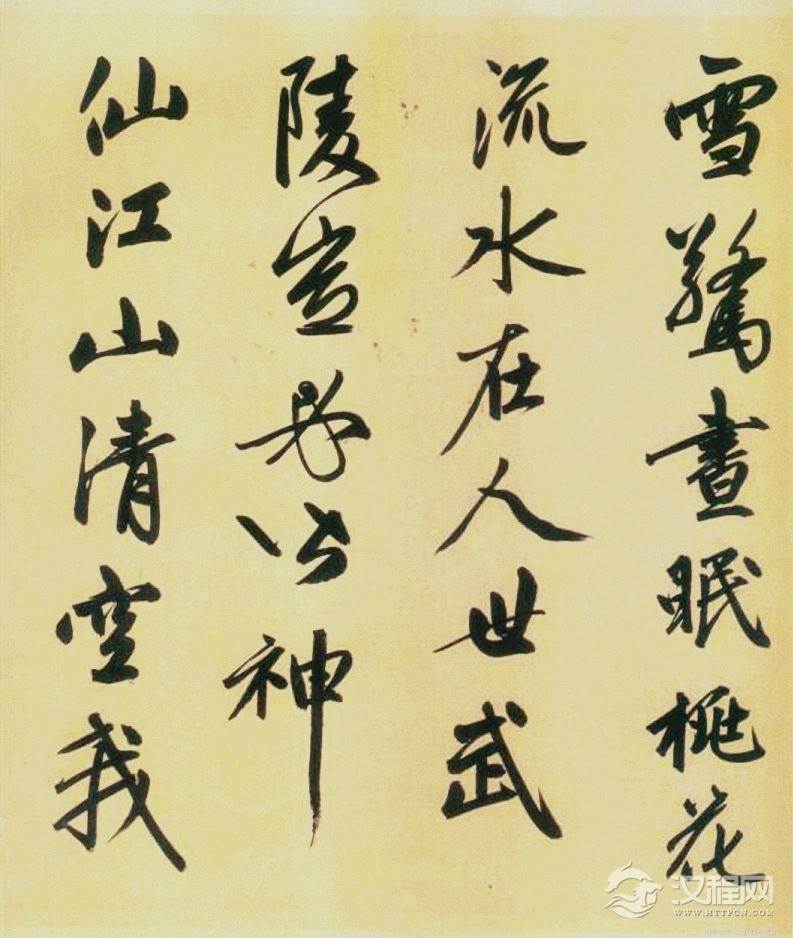 雪驚晝眠桃花
流水在人世武
陵豈必皆神
仙江山清空我
汉程网
WWW.HTTPCN.COM